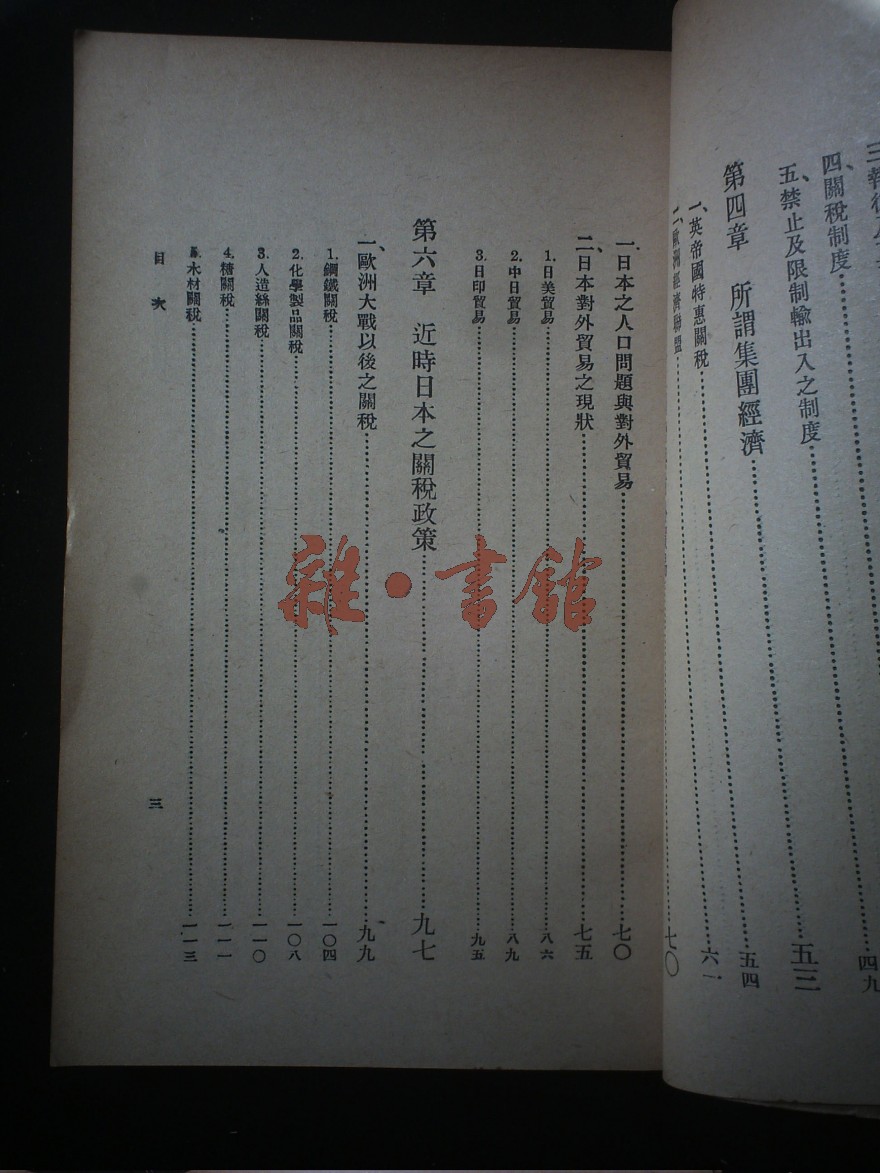 四、關稅制度……四九
五、禁止及限制輸出入之制度……五三
第四章　所謂集團經濟……五四
一、英帝國特惠關稅……六一
二、歐洲經濟聯盟……七〇
一、日本之人口問題與對外貿易……七〇
二、日本對外貿易之現狀……七五
1. 日美貿易……八六
2. 中日貿易……八九
3. 日印貿易……九五
第六章　近時日本之關稅政策……九七
一、歐洲大戰以後之關稅……九九
1. 鋼鐵關稅……一〇四
2. 化學製品關稅……一〇八
3. 人造絲關稅……一一〇
4. 糖關稅……一一一
5. 木材關稅……一一三
目次
三
雜·書館